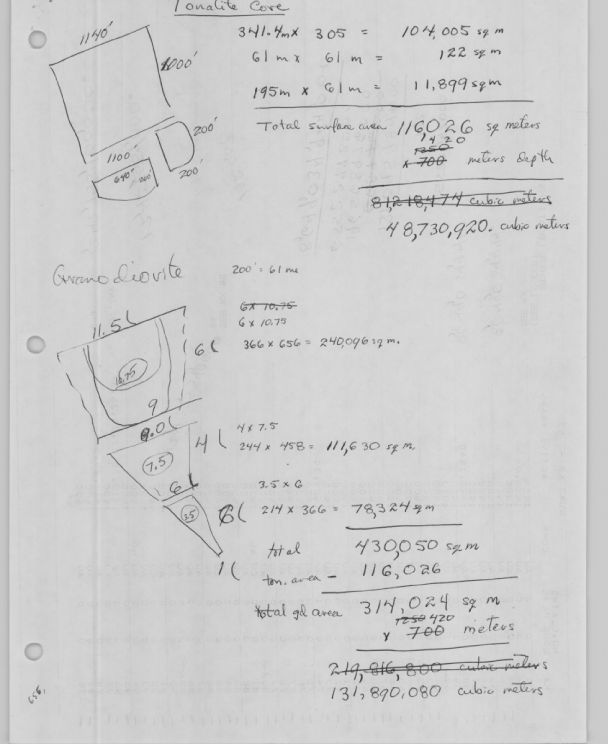 Tonalite Core
1140'
1000'
341.4m x 305 = 104,005 sq m
61 m x 61 m = 122 sq m
195m x 61m = 11,899 sq m
200'
Total surface area 116026 sq meters
1420
1250
x 700 meters depth
1100'
640'
200'
200'
81,218,474 cubic meters
48,730,920. cubic meters
Granodiorite
200' = 61 m
6 x 10.75
6 x 10.75
11.5 (
6 (
366 x 656 = 240,096 sq m.
10.75
9
9.0 (
4 (
4 x 7.5
244 x 458 = 111,630 sq m.
7.5
6 (
3.5 x 6
6 (
214 x 366 = 78,324 sq m
3.5
1 (
total 430,050 sq m
ton. area - 116,026
total gd area 314,024 sq m
1250 420
x 700 meters
219,816,800 cubic meters
131,890,080 cubic meters